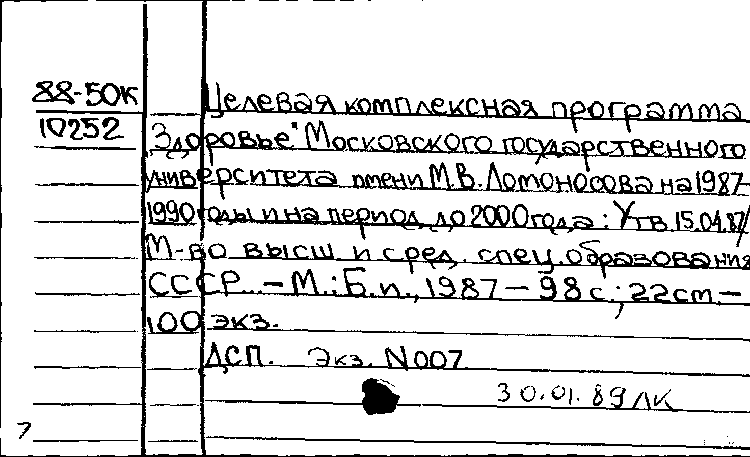 88-50К
10252
Целевая комплексная программа
Здоровье" Московского государственного
университета имени М.В. Ломоносова на 1987-
1990 годы и на период до 2000 года: Утв. 15.04.87/
М-во высш и сред. спец. образования
СССР. - М.: Б.и., 1987 - 98 с.; 22 cm -
100 экз.
ДСП. Экз. N007
30.01.89 ЛК
7